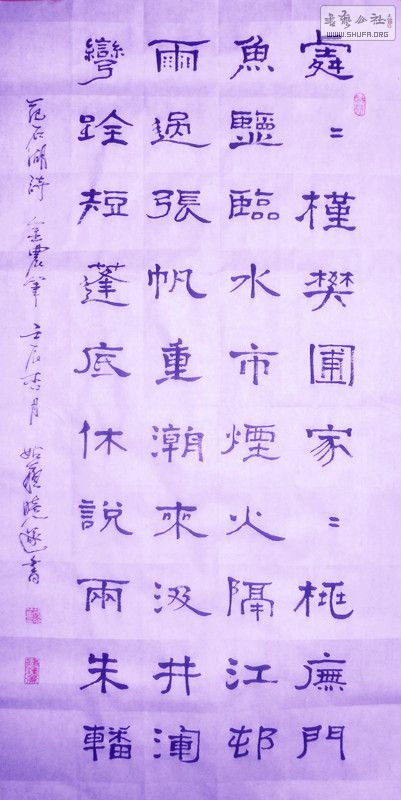 書藝公社
WWW.SHUFA.ORG
處〻槿樊圃家〻桃廡門
魚鹽臨水市煙火隔江邨
雨過張帆重潮來汲井渾
彎跧短蓬底休說兩朱轓
范石湖詩 壬辰杏月 姑蘇書